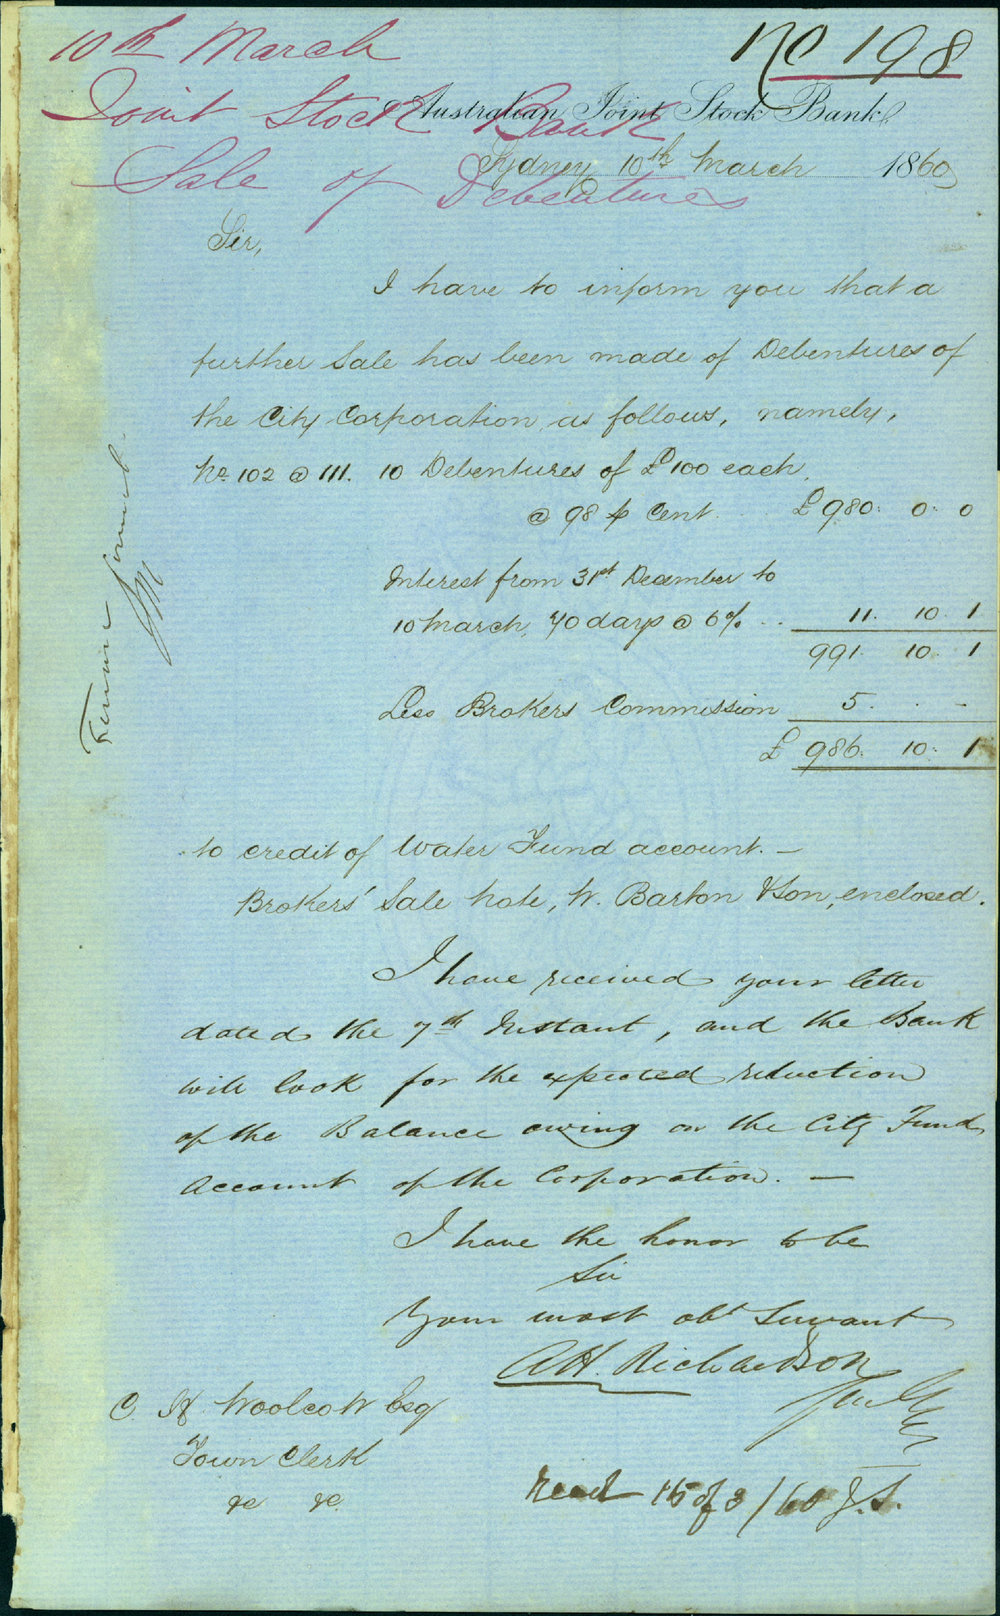 No 198
10th March
Joint Stock Bank
Sale of Debentures
Australian Joint Stock Bank
Sydney 10th March 1860
Sir,
I have to inform you that a
further Sale has been made of Debentures of
the City Corporation as follows, namely,
No. 102 @ 111. 10 Debentures of £100 each
@ 98 ⅌ Cent £980. 0. 0
Interest from 31st December to
10 March, 70 days @ 6% .. 11. 10. 1
991 10. 1
Less Brokers Commission 5. . -
£ 986. 10. 1
to credit of Water Fund account. -
Brokers' Sale Note, W. Barton & Son, enclosed.
I have received your letter
dated the 7th Instant, and the Bank
will look for the expected reduction
of the Balance owing on the City Fund
Account of the Corporation. -
I have the honor to be
Sir
Your most obt Servant
AH. Richardson
C. H. Woolcott Esq
Town Clerk
&c &c
Read 15 of 3/60 J.S.